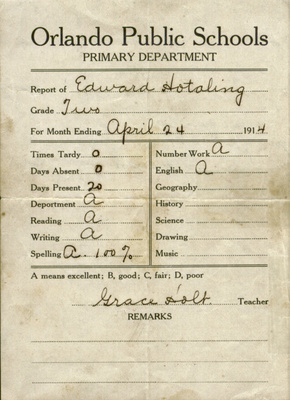 Orlando Public Schools
PRIMARY DEPARTMENT
Report of Edward Hotaling
Grade Two
For Month Ending April 24 1914
Times Tardy 0
Days Absent 0
Days Present 20
Deportment A
Reading A
Writing A
Spelling A. 100%
Number Work A
English A
Geography
History
Science
Drawing
Music
A means excellent; B, good; C, fair; D, poor
Grace Holt Teacher
REMARKS